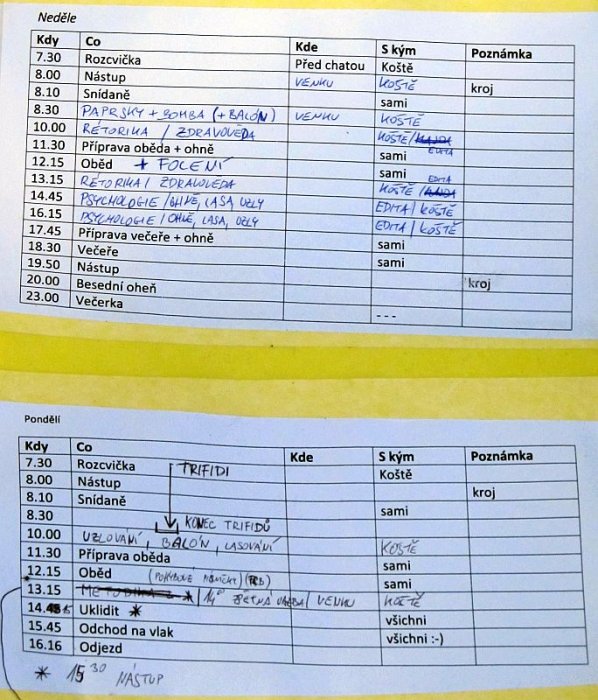 Neděle
Kdy Co Kde S kým Poznámka
7.30 Rozcvička Před chatou Koště
8.00 Nástup VENKU KOŠTĚ kroj
8.10 Snídaně sami
8.30 PAPRSKY + BOMBA (+ BALÓN) VENKU KOŠTĚ
10.00 RÉTORIKA / ZDRAVOVĚDA KOŠTĚ / EDITA
11.30 Příprava oběda + ohně sami
12.15 Oběd + FOCENÍ sami
13.15 RÉTORIKA / ZDRAVOVĚDA KOŠTĚ / EDITA
14.45 PSYCHOLOGIE / OHNĚ, LASA, UZLY EDITA / KOŠTĚ
16.15 PSYCHOLOGIE / OHNĚ, LASA, UZLY EDITA / KOŠTĚ
17.45 Příprava večeře + ohně sami
18.30 Večeře sami
19.50 Nástup
20.00 Besední oheň kroj
23.00 Večerka - - -
Pondělí
Kdy Co Kde S kým Poznámka
7.30 Rozcvička TRIFIDI Koště
8.00 Nástup kroj
8.10 Snídaně sami
8.30 KONEC TRIFIDŮ
10.00 UZLOVÁNÍ, BALÓN, LASOVÁNÍ KOŠTĚ
11.30 Příprava oběda sami
12.15 Oběd sami
13.15 / ZPĚTNÁ VAZBA / VENKU KOŠTĚ
Uklidit * všichni
15.45 Odchod na vlak všichni :-)
16.16 Odjezd
* 15 30 NÁSTUP